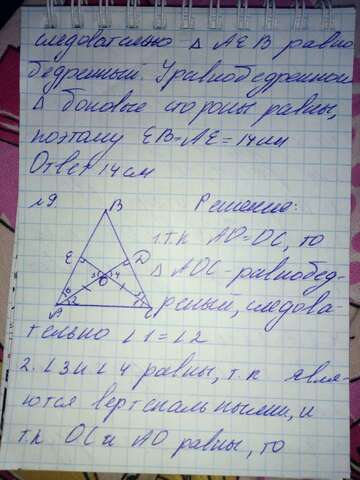 следовательно △ AEB равно
бедренный. У равнобедренном
△ боковые стороны равны,
поэтому EB=AE=14см
Ответ 14см
№9.
Решение:
B
E
D
3
4
O
2
1
A
C
1. т.к AO=OC, то
△ AOC-равнобед-
ренный, следова-
тельно ∠1=∠2
2. ∠3 и ∠4 равны, т.к явля-
ются вертикальными, и
т.к OC и AO равны, то